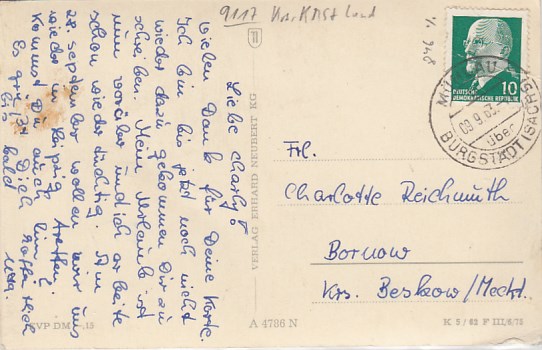 Liebe Charly!
Vielen Dank für Deine Karte.
Ich bin bis jetzt noch nicht
wieder dazu gekommen Dir zu
schreiben. Mein Urlaub ist
nun vorüber und ich arbeite
schon wieder tüchtig. Am
28. September wollen wir uns
wieder in Leipzig treffen.
Kommst Du auch hin?
Es grüßt Dich
bis bald
9117
VERLAG ERHARD NEUBERT KG
EVP DM 0,15
A 4786 N
K 5/63 F III/6/73
DEUTSCHE
DEMOKRATISCHE REPUBLIK
10
09.9.63
über
BURGSTÄDT (SACHS)
Frl.
Charlotte Reichmuth
Bornow
Krs. Beskow/Meckl.